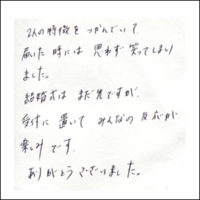 2人の特徴をつかんでいて
届いた時には 思わず 笑ってしまい
ました。
結婚式は まだ先ですが、
受付に 置いて みんなの 反応が
楽しみ です。
ありがとうございました。